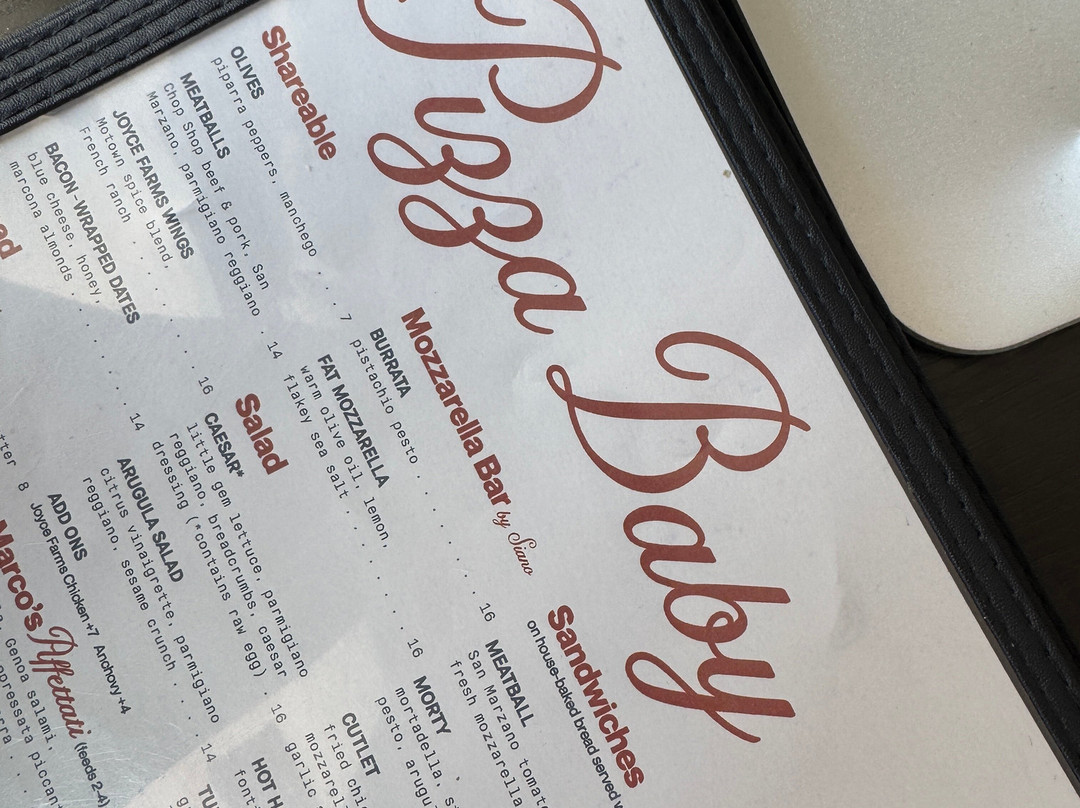 Pizza Baby
Shareable
OLIVES
piparra peppers, manchego . . . . 7
MEATBALLS
Chop Shop beef & pork, San
Marzano, parmigiano reggiano . 14
JOYCE FARMS WINGS
Motown spice blend,
French ranch . . . . . . . . . 16
BACON-WRAPPED DATES
blue cheese, honey,
marcona almonds . . . . . . . . 14
ad
tter 8
Mozzarella Bar by Siano
BURRATA
pistachio pesto . . . . . . . . 16
FAT MOZZARELLA
warm olive oil, lemon,
flakey sea salt. . . . . . . . 16
Salad
CAESAR*
little gem lettuce, parmigiano
reggiano, breadcrumbs, caesar
dressing (*contains raw egg) . 16
ARUGULA SALAD
citrus vinaigrette, parmigiano
reggiano, sesame crunch . . . . 14
ADD ONS
Joyce Farms Chicken +7 Anchovy +4
Marco's Affettati (feeds 2-4)
Genoa salami,
opressata piccan
Sandwiches
on house-baked bread served
MEATBALL
San Marzano tomat
fresh mozzarella
MORTY
mortadella, s
pesto, arugu
CUTLET
fried chi
mozzarel
garlic
HOT H
font
TU